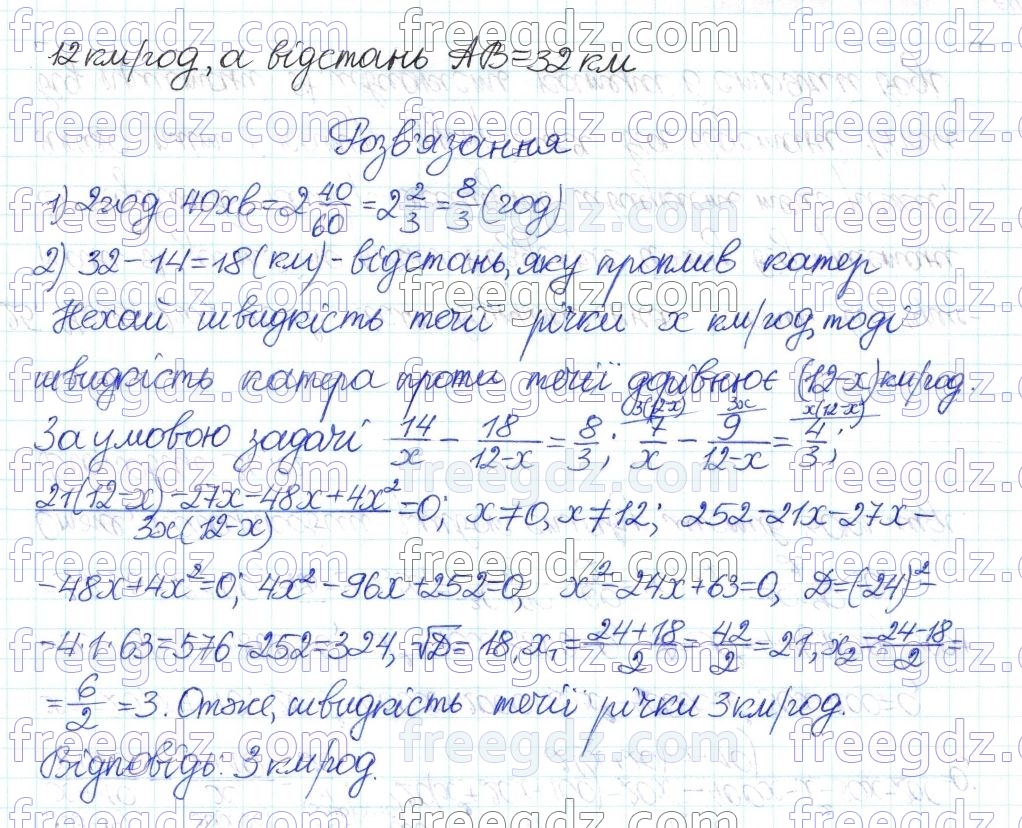 12 км/год, а відстань AB=32 км
Розв'язання
1) 2 год 40 хв = 2 40/60 = 2 2/3 = 8/3 (год)
2) 32 - 14 = 18 (км) - відстань, яку проплив катер
Нехай швидкість течії річки x км/год, тоді
швидкість катера проти течії дорівнює (12-x) км/год.
За умовою задачі 14/x - 18/(12-x) = 8/3; 3(12-x) 7/x - 3x 9/(12-x) = x(12-x) 4/3;
(21(12-x) - 27x - 48x + 4x²)/(3x(12-x)) = 0; x≠0, x≠12; 252 - 21x - 27x -
- 48x + 4x² = 0; 4x² - 96x + 252 = 0, x² - 24x + 63 = 0, D = (-24)² -
- 4·1·63 = 576 - 252 = 324, √D = 18, x₁ = (24+18)/2 = 42/2 = 21, x₂ = (24-18)/2 =
= 6/2 = 3. Отже, швидкість течії річки 3 км/год.
Відповідь: 3 км/год.
freegdz.com